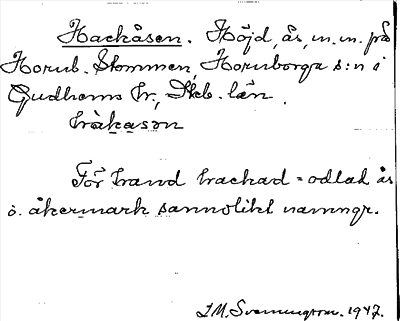 Hackåsen. Höjd, ås, m.m. på
Hornb. Stommen, Hornborga s:n i
Gudhems hr, Skb. län.
hràkasən
För hand hackad = odlad ås
o. åkermark sannolikt namngr.
I.M. Svenningson. 1947.